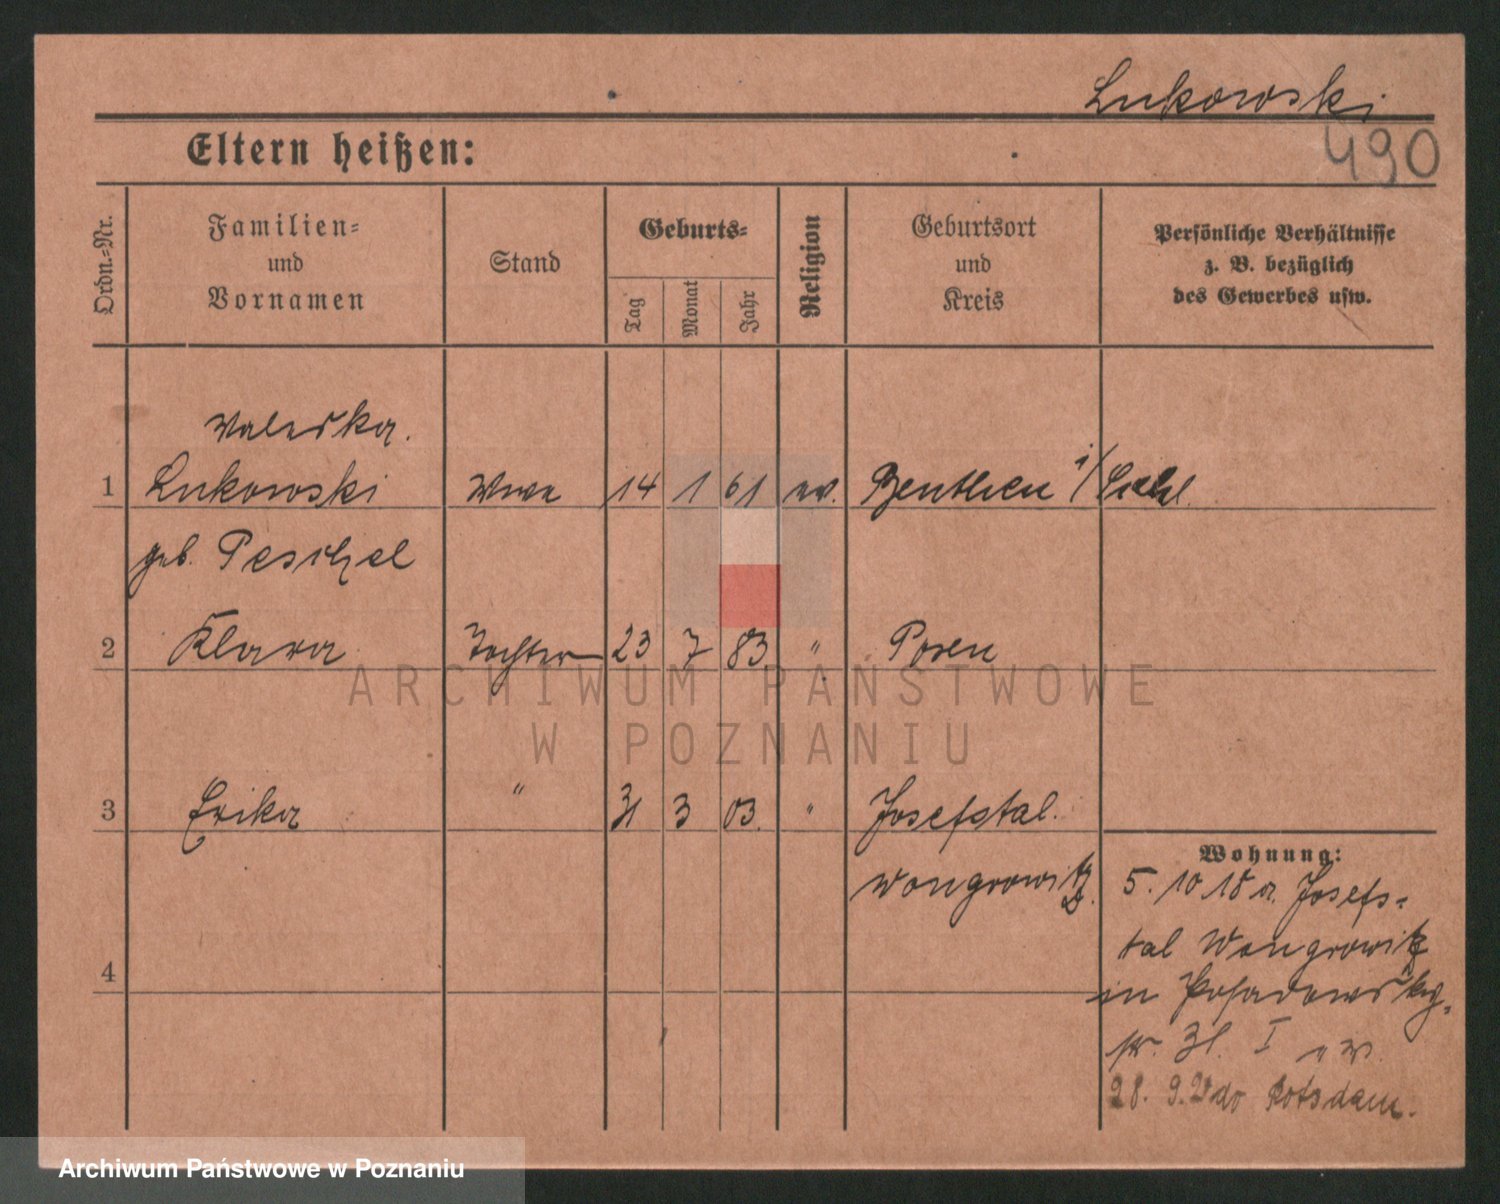 Lukowski
490
Eltern heißen:
Ordn.=Nr.
Familien=
und
Vornamen
Stand
Geburts=
Tag
Monat
Jahr
Religion
Geburtsort
und
Kreis
Persönliche Verhältnisse
z. B. bezüglich
des Gewerbes usw.
Waleska.
1 Lukowski Wwe 14 1 61 ev. Beuthen i/
geb. Peschel
2 Klara Tochter 23 7 83 " Posen
3 Erika " 31 3 03. " Josefstal.
Wongrowitz.
Wohnung:
5. 10 18 a. Josefs=
tal Wongrowitz
in
4
I
28. 9. Potsdam.
ARCHIWUM PAŃSTWOWE
W POZNANIU
Archiwum Państwowe w Poznaniu